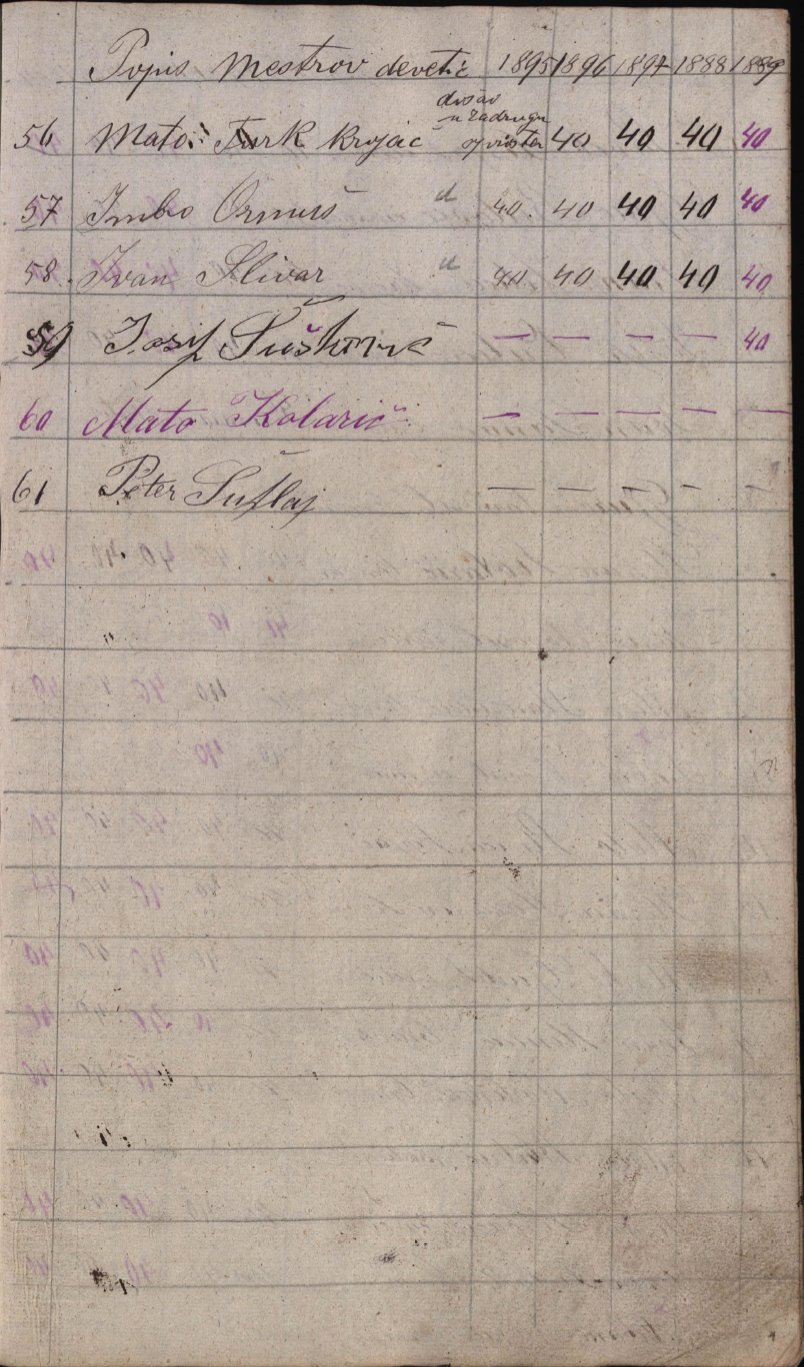 Popis mestrov devetic 1895 1896 1897 1888 1889
došao
u zadrugu
56 Mato Turk krojač 40 40 40 40
57 Imbro Ormuš d 40 40 40 40 40
58 Ivan Slivar d 40 40 40 40 40
59 Josip — — — — 40
60 Mato Kolarić — — — — —
61 Peter Šuflaj — — — — —